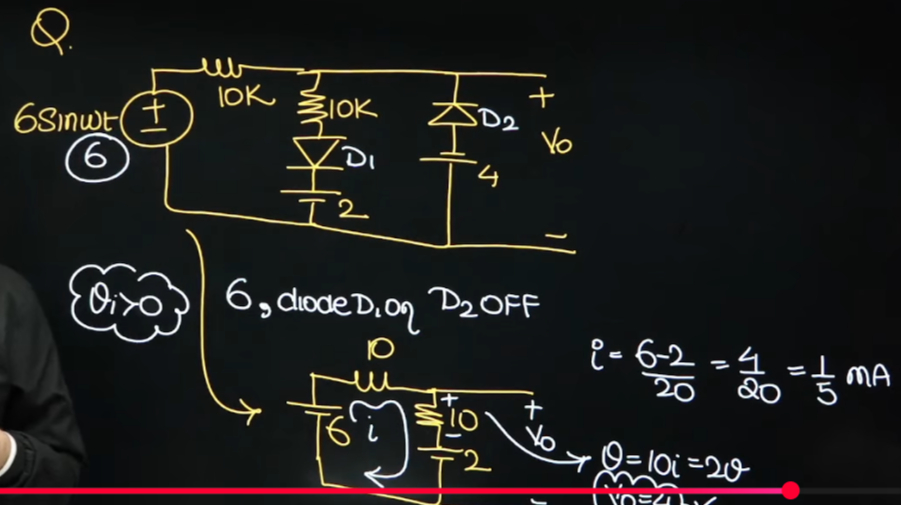 Q.
10K
10K
6Sinωt
+
−
D1
D2
+
Vo
6
4
2
−
θi>0
6, diode D1 on D2 OFF
10
i = 6-2/20 = 4/20 = 1/5 mA
6
i
+
10
−
2
+
Vo
−
θ=10i=2θ
Vo=4